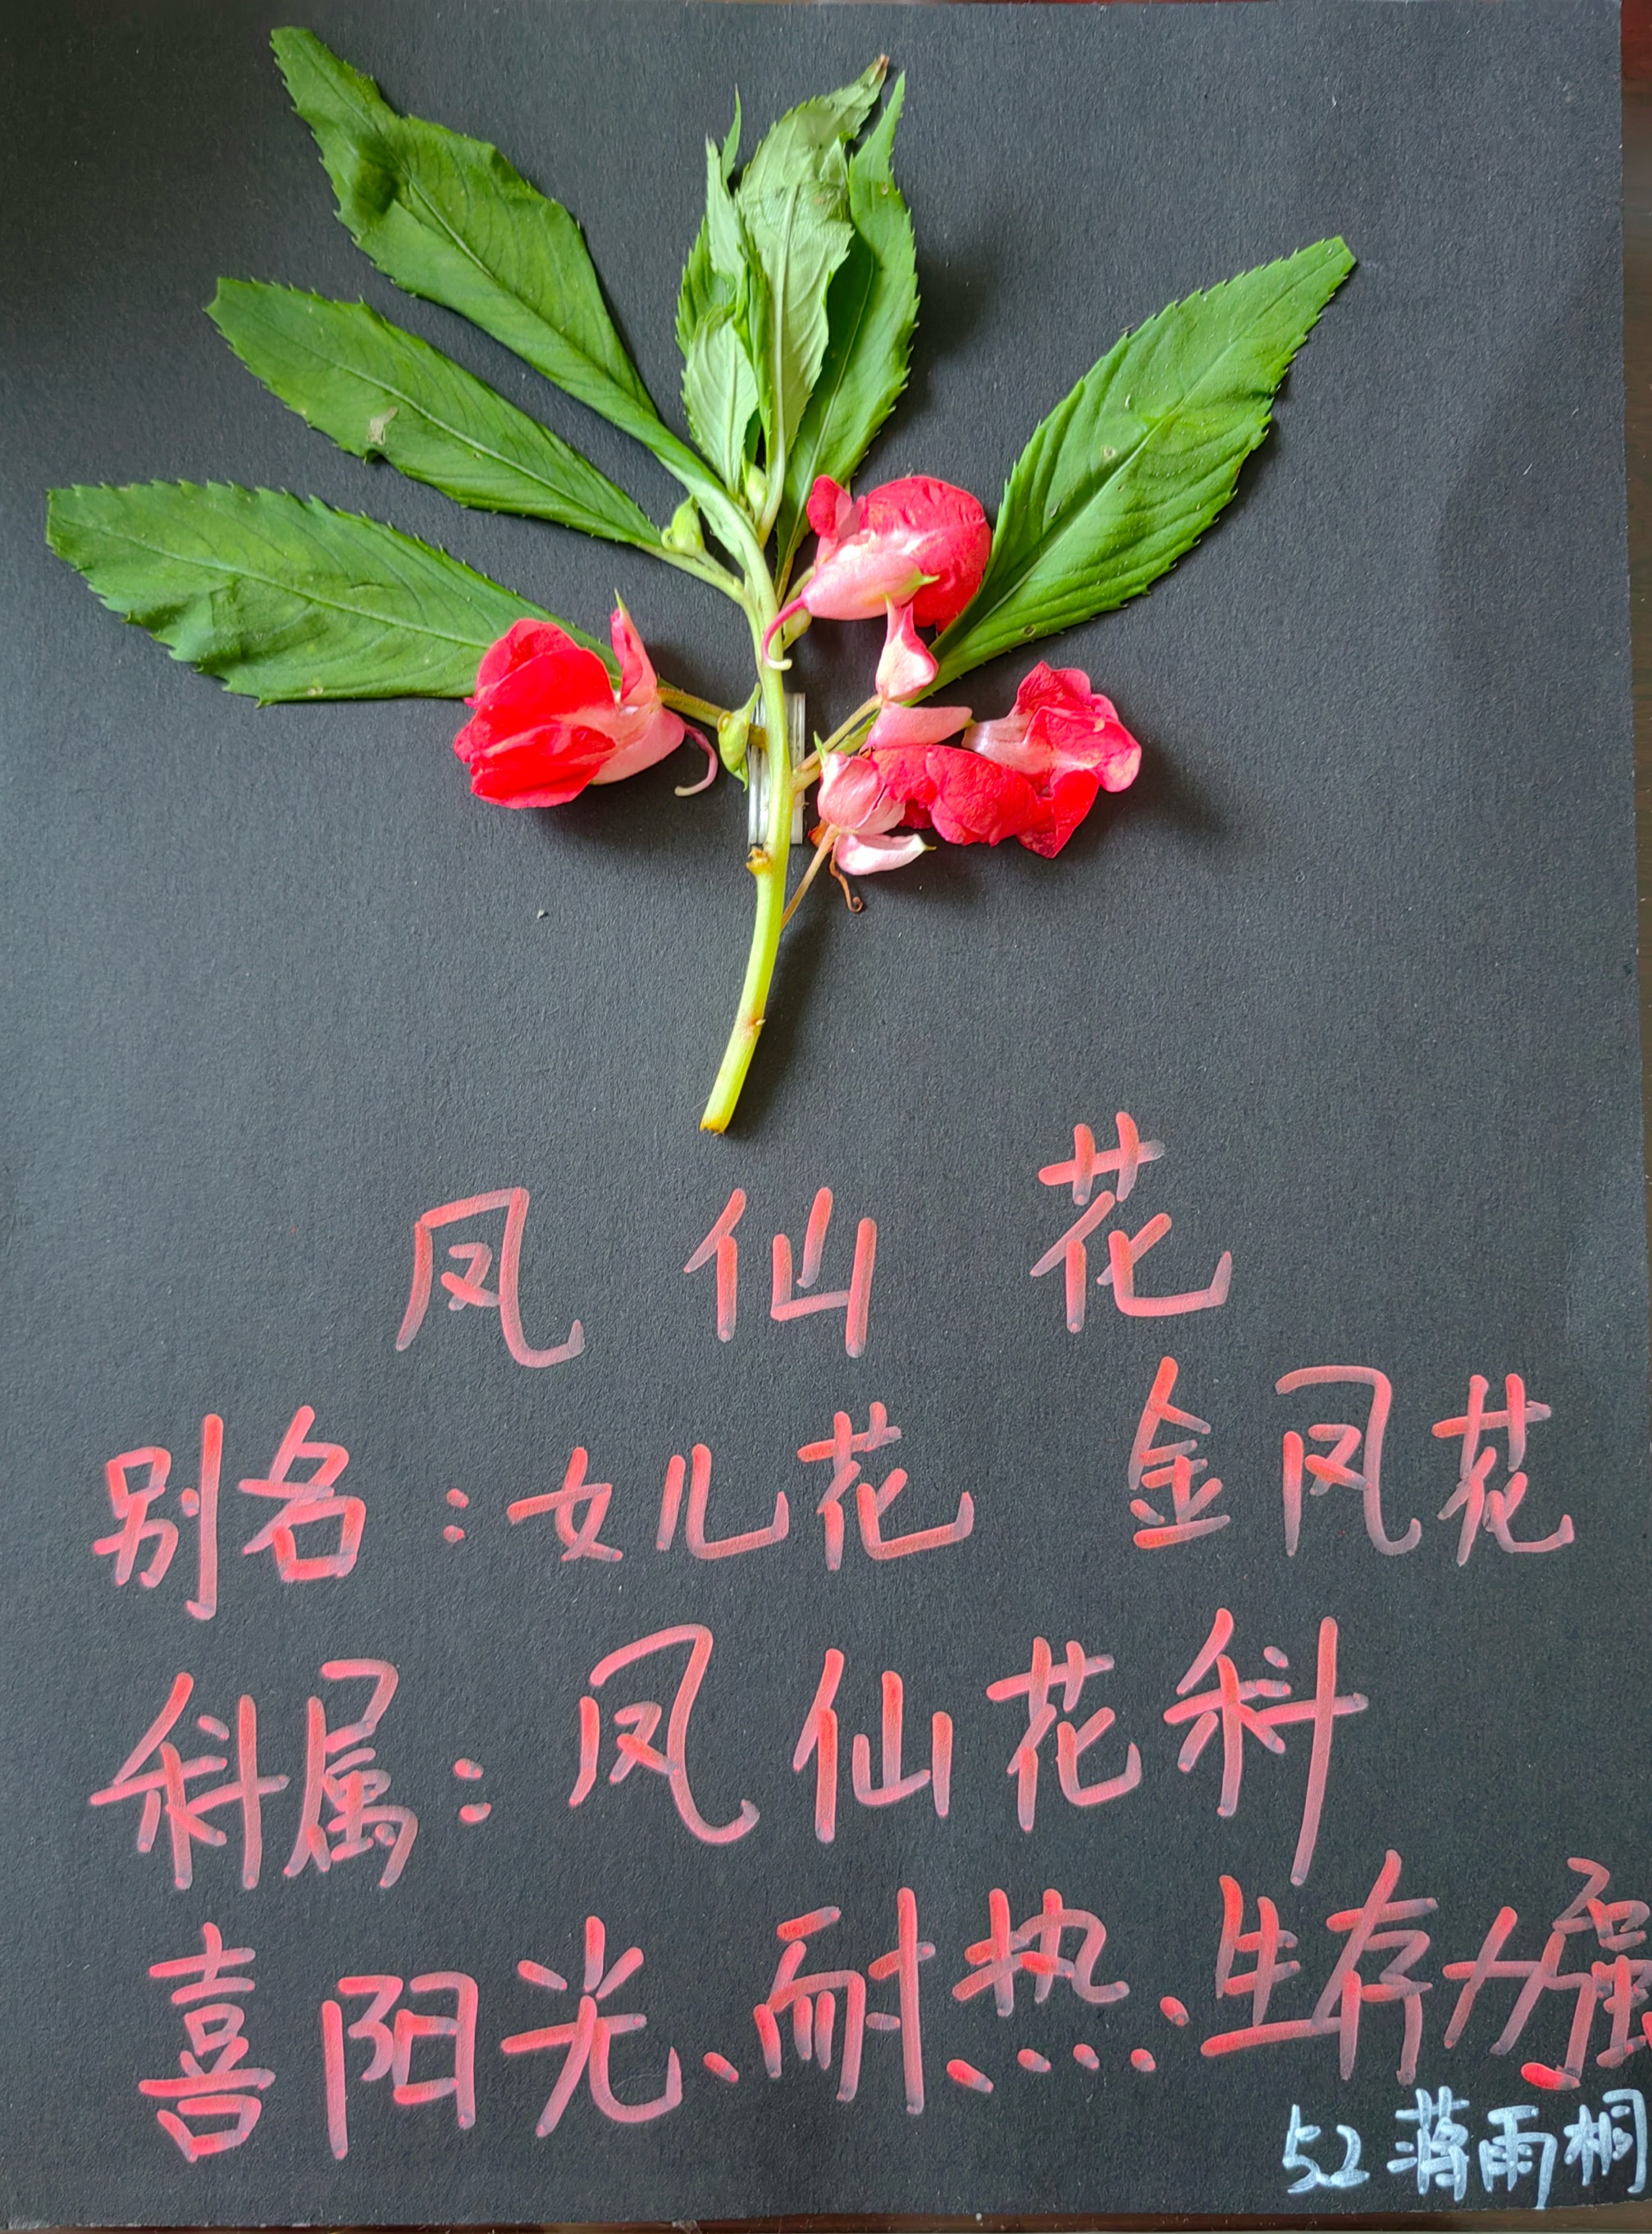 凤仙花
别名：女儿花 金凤花
科属：凤仙花科
喜阳光、耐热、生存力强
52 蒋雨桐